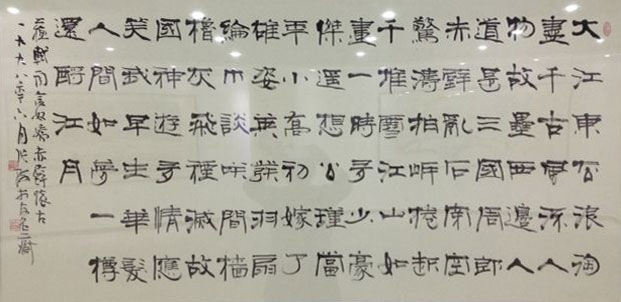 大江東去浪淘
盡千古風流人
物故壘西邊人
道是三國周郎
赤壁亂石穿空
驚濤拍岸捲起
千堆雪江山如
畫一時多少豪
傑遥想公瑾當
年小喬初嫁了
雄姿英發羽扇
綸巾談笑間檣
櫓灰飛煙滅故
國神遊多情應
笑我早生華髮
人間如夢一樽
還酹江月
蘇軾詞念奴嬌赤壁懷古
一九九八年六月